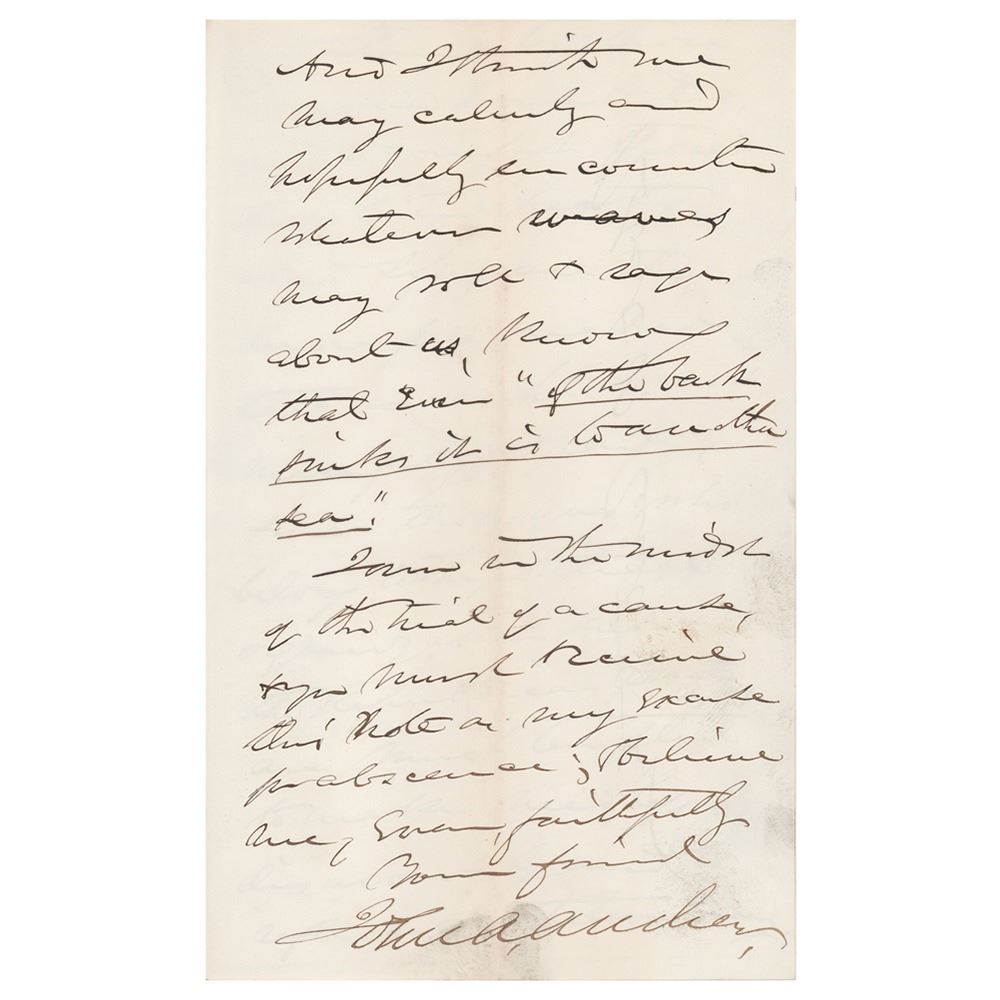 And I think we
may calmly and
hopefully encounter
whatever waves
may roll & rage
about us, know
that even "if the bark
sinks it is to another
sea."
I am in the midst
of the trial of a cause,
& you must receive
this note as my excuse
for absence; & believe
me, ever, faithfully
Your friend
John A. Andrew,